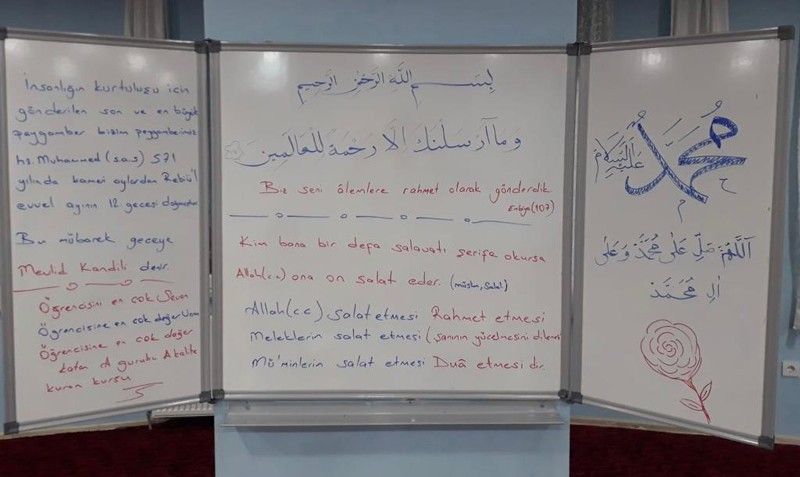 İnsanlığın kurtuluşu için
gönderilen son ve en büyük
peygamber bizim peygamberimiz
hz. Muhammed (s.a.s) 571
yılında kameri aylardan Rebiu'l
evvel ayının 12 gecesi doğmuştur
Bu mübarek geceye
Mevlid Kandili denir.
Öğrencisini en çok Seven
Öğrencisine en çok değer Veren
Öğrencisine en çok değer
katan A gurubu A kalite
kuran kursu
بسم الله الرحمن الرحيم
وما آرسلنك الا رحمة للعالمين
Biz seni âlemlere rahmet olarak gönderdik
Enbiya(107)
Kim bana bir defa salavatı şerife okursa
Allah(c.c) ona on salat eder. (müslim, Salat)
Allah(c.c) Salat etmesi Rahmet etmesi
Meleklerin salat etmesi (şanının yücelmesini dilemesi
Mü'minlerin salat etmesi Duâ etmesi dir.
محمد
عليه السلام
ح
م
اللهم صل على محمد وعلى
ال محمد